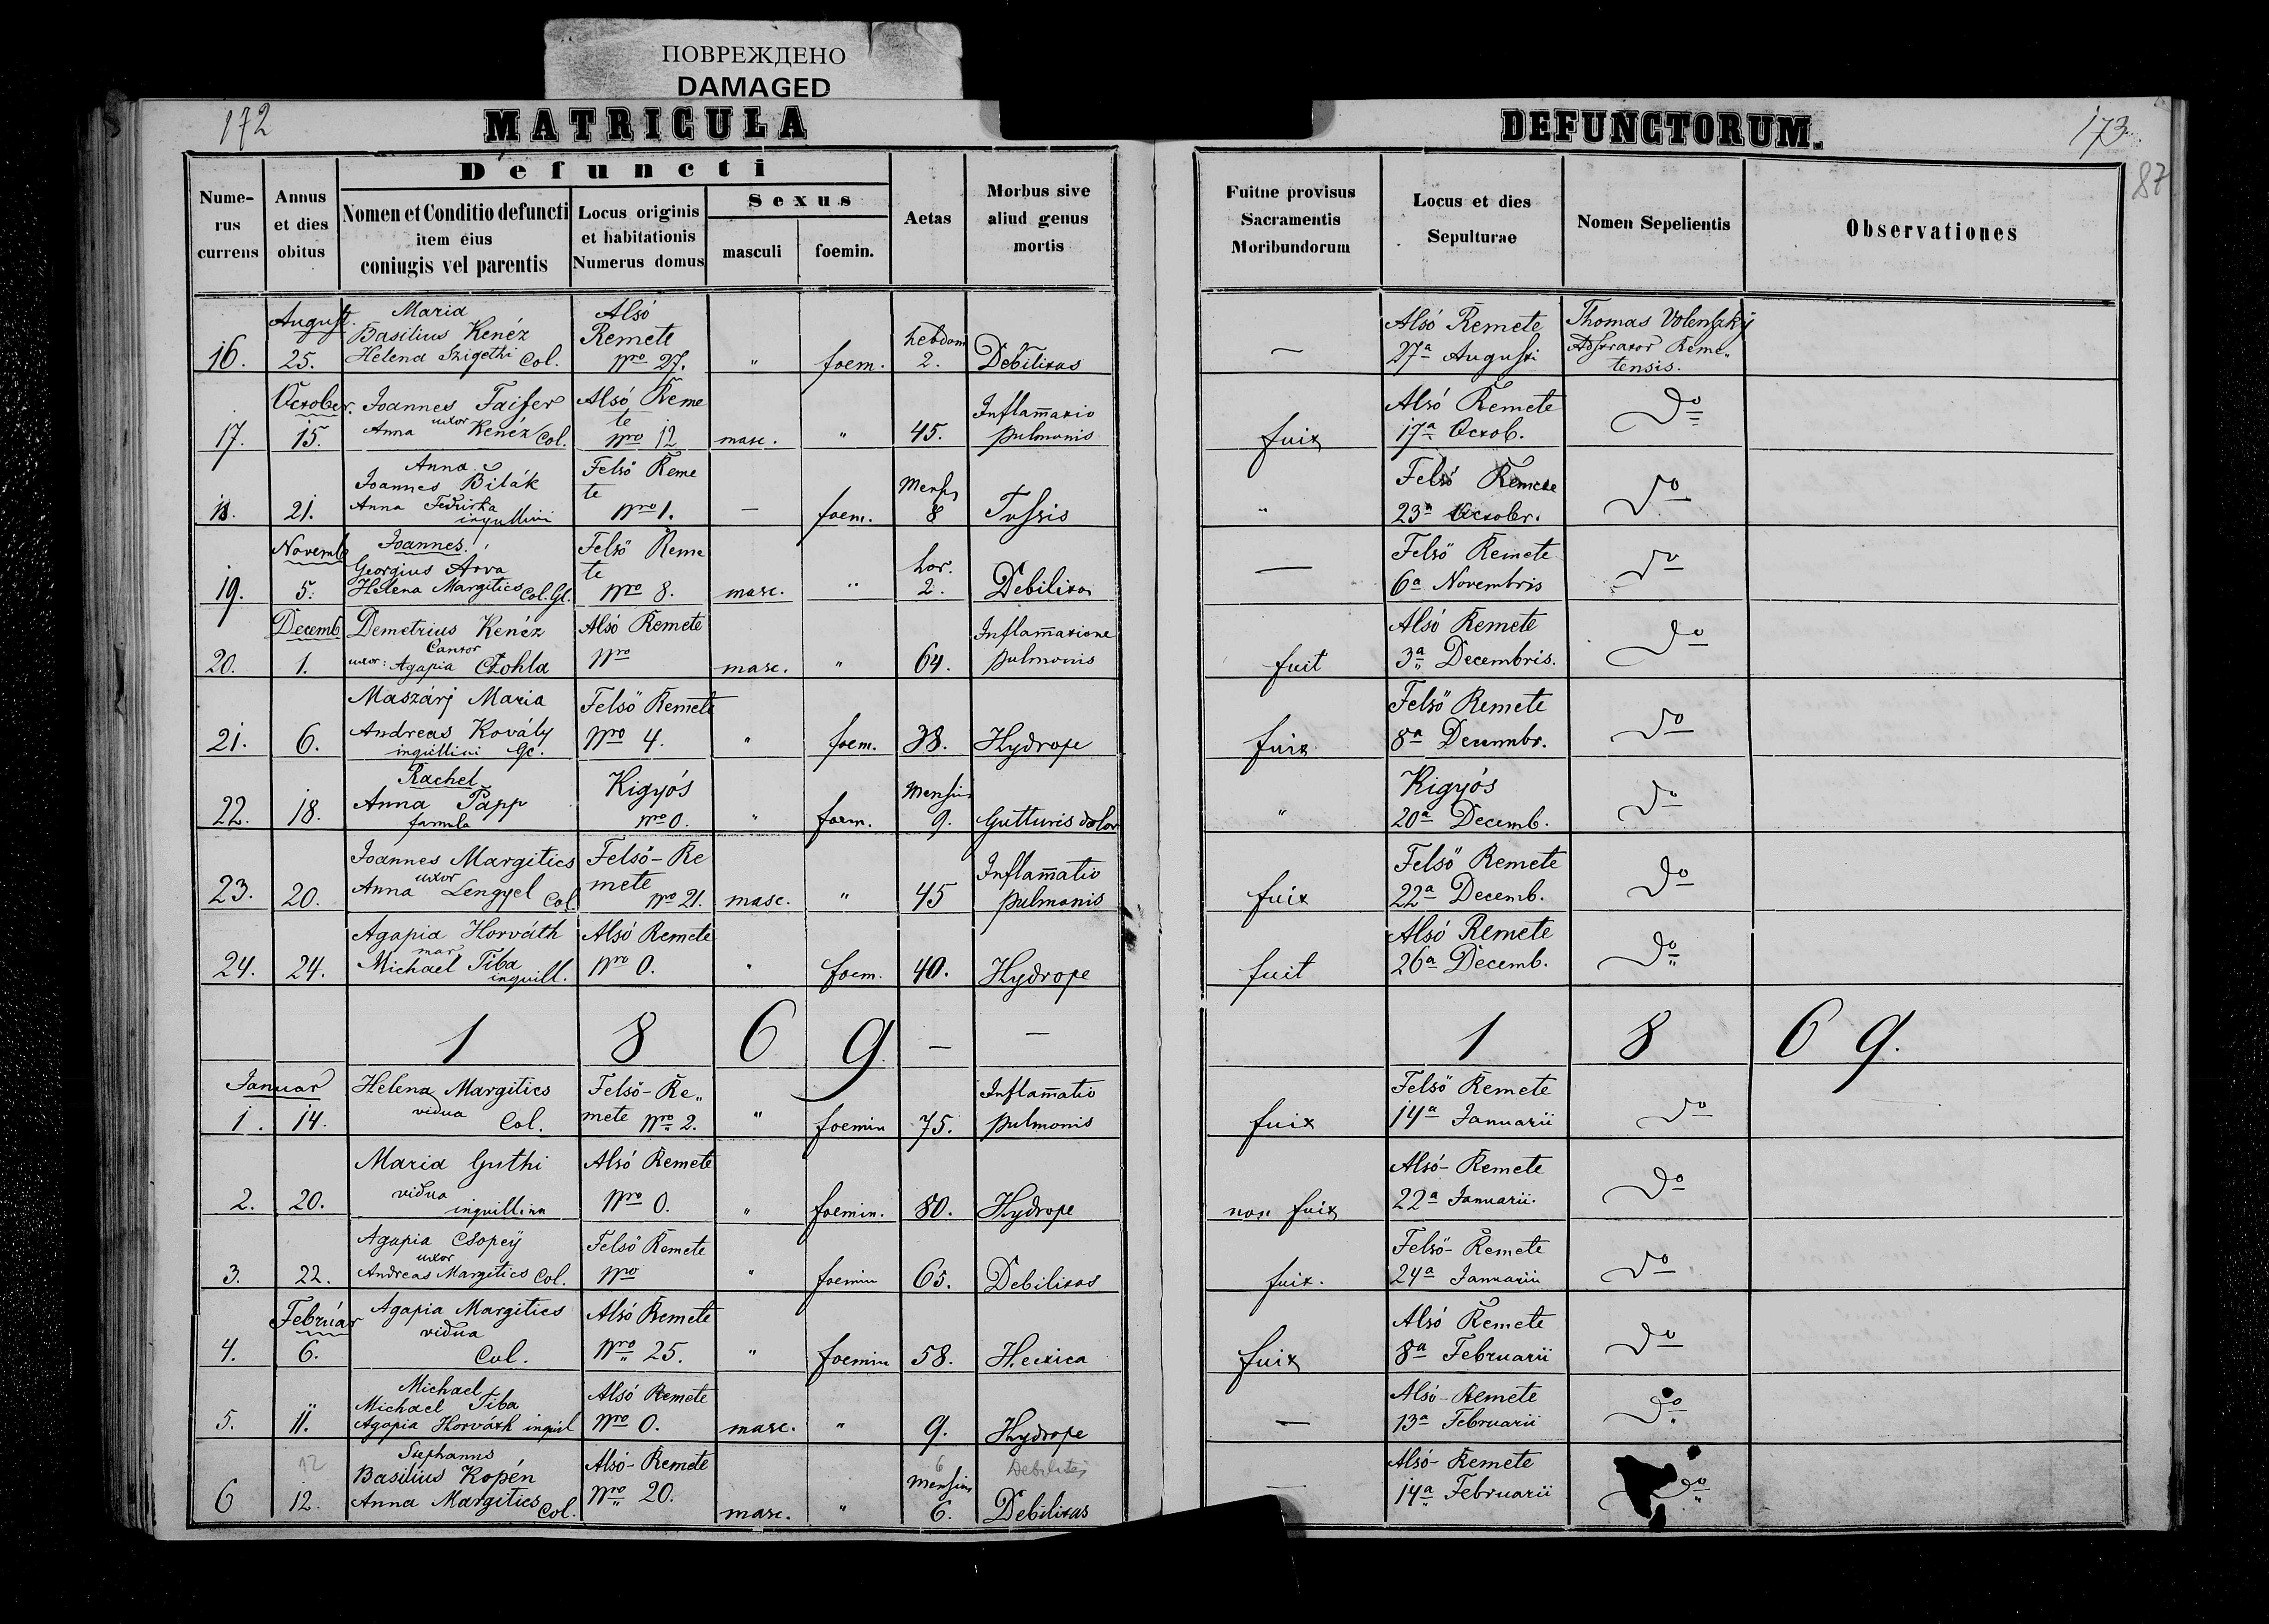 ПОВРЕЖДЕНО
DAMAGED
172
MATRICULA
DEFUNCTORUM.
173.
87
Defuncti
Nume-
rus
currens
Annus
et dies
obitus
Nomen et Conditio defuncti
item eius
coniugis vel parentis
Locus originis
et habitationis
Numerus domus
Sexus
masculi
foemin.
Aetas
Morbus sive
aliud genus
mortis
Fuitne provisus
Sacramentis
Moribundorum
Locus et dies
Sepulturae
Nomen Sepelientis
Observationes
August. Maria Alsó Alsó Remete Thomas Volenszky
Basilius Kenéz Remete hebdom
16. 25. Helena Szigethi Col. Nro 27. " foem. 2. Debilitas — 27a Augusti Adstrator Reme„
tensis.
October. Joannes Faiser Alsó Reme Inflam̄atio Alsó Remete Do
uxor te
17. 15. Anna Kenéz Col. Nro 12 masc. " 45. pulmonis fuit 17a Octob.
Anna Felső Reme Felső Remete Do
Joannes Bilák te Mens
18. 21. Anna inquilini Nro 1. — foem. 8 Tussis " 23a Octobr.
Novemb Joannes Felső Reme Felső Remete Do
Georgius Arva te hor.
19. 5. Helena Margitics Col. Gl. Nro 8. masc. " 2. Debilitas — 6a Novembris
Decemb Demetrius Kenéz Alsó Remete Inflam̄atione Alsó Remete Do
Cantor
20. 1. uxor: Agapia Czohla Nro masc. " 64. pulmonis fuit 3a Decembris.
Maszárj Maria Felső Remete Felső Remete Do
21. 6. Andreas Kovály Nro 4. " foem. 38. Hydrope fuit 8a Decembr.
inquillini
Rachel Kigyós Kigyós Do
Anna Papp Mensium
22. 18. famula Nro 0. " foem. 9. Gutturis dolor " 20a Decemb.
Joannes Margitics Felső-Re Inflam̄atio Felső Remete Do
uxor mete
23. 20. Anna Lengyel Col Nro 21. masc. " 45 pulmonis fuit 22a Decemb.
Agapia Horváth Alsó Remete Alsó Remete Do
mar
24. 24. Michael Tiba Nro 0. " foem. 40. Hydrope fuit 26a Decemb.
inquill.
1 8 6 9 — — 1 8 6 9.
Januar Helena Margitics Felső-Re„ Inflam̄atio Felső Remete Do
1. 14. vidua Col. mete Nro 2. " foemin 75. pulmonis fuit 14a Januarii
Maria Guthi Alsó Remete Alsó-Remete Do
vidua
2. 20. inquillina Nro 0. " foemin. 80. Hydrope non fuit 22a Januarii.
Agapia Csopey Felső Remete Felső-Remete Do
uxor
3. 22. Andreas Margitics Col. Nro " foemin 65. Debilitas fuit. 24a Januarii
Február Agapia Margitics Alsó Remete Alsó Remete Do
vidua
4. 6. Col. Nro 25. " foemin 58. Hectica fuit 8a Februarii
Michael Alsó Remete Alsó-Remete Do
Michael Tiba
5. 11. Agapia Horváth inquil Nro 0. masc. " 9. Hydrope — 13a Februarii
Stephanus Alsó-Remete Alsó-Remete Do
12 Basilius Kopén 6 Debilitas
Mensium
6 12. Anna Margitics Col. Nro 20. masc. " 6. Debilitas — 14a Februarii